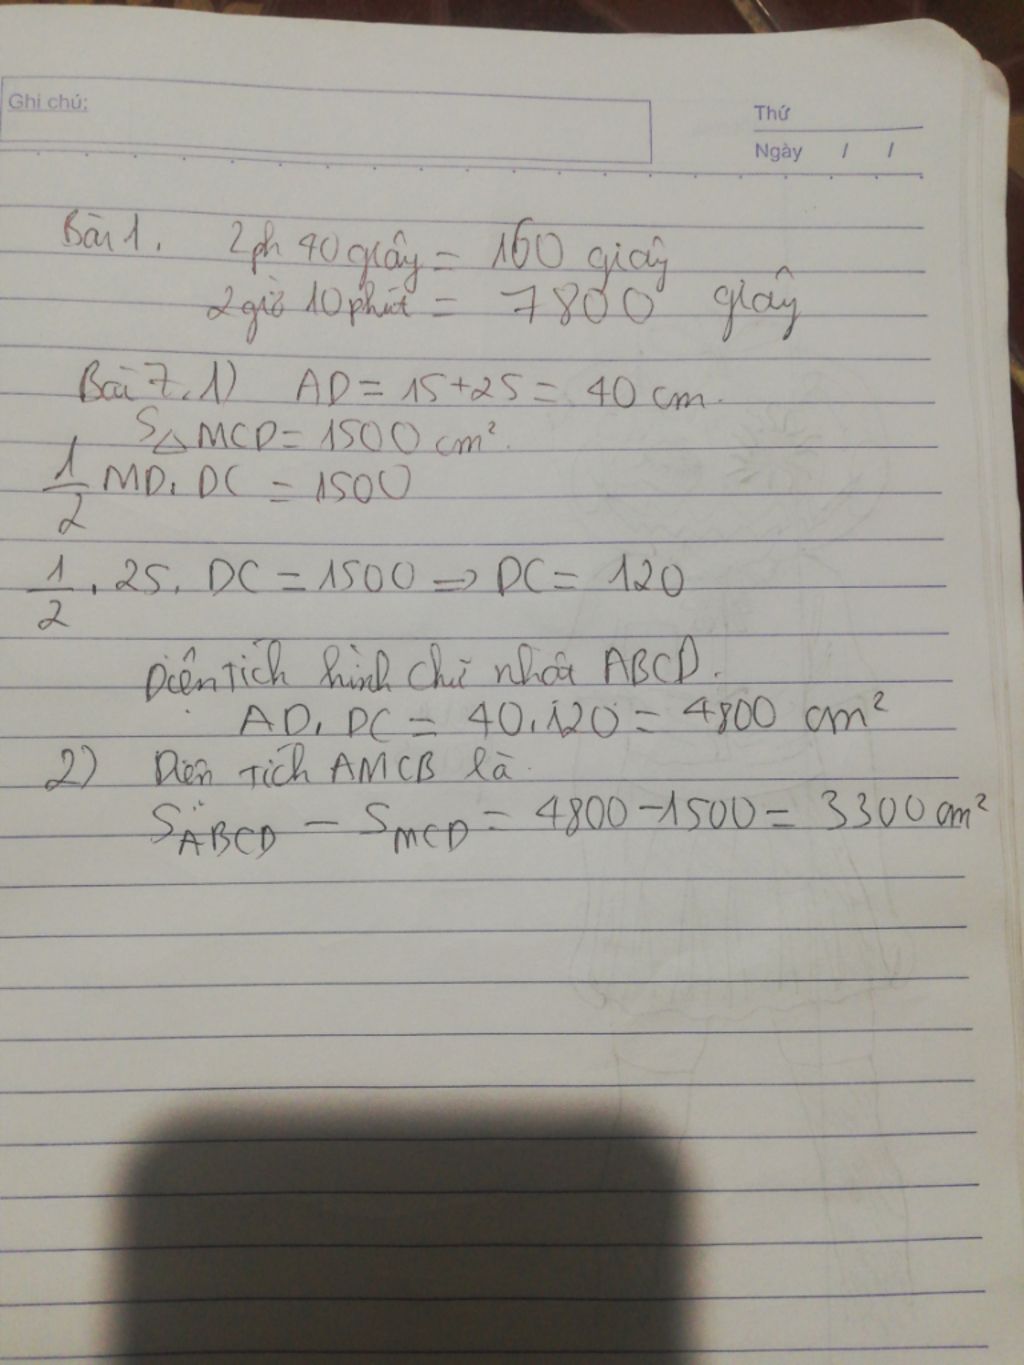 Ghi chú:
Thứ
Ngày / /
Bài 1. 2ph 40 giây = 160 giây
2 giờ 10 phút = 7800 giây
Bài 7. 1) AD = 15 + 25 = 40 cm.
S△ MCD = 1500 cm².
1/2 MD. DC = 1500
1/2 . 25. DC = 1500 => DC = 120
Diện tích hình chữ nhật ABCD.
AD. DC = 40.120 = 4800 cm²
2) Diện tích AMCB là.
S_ABCD - S_MCD = 4800 - 1500 = 3300 cm²